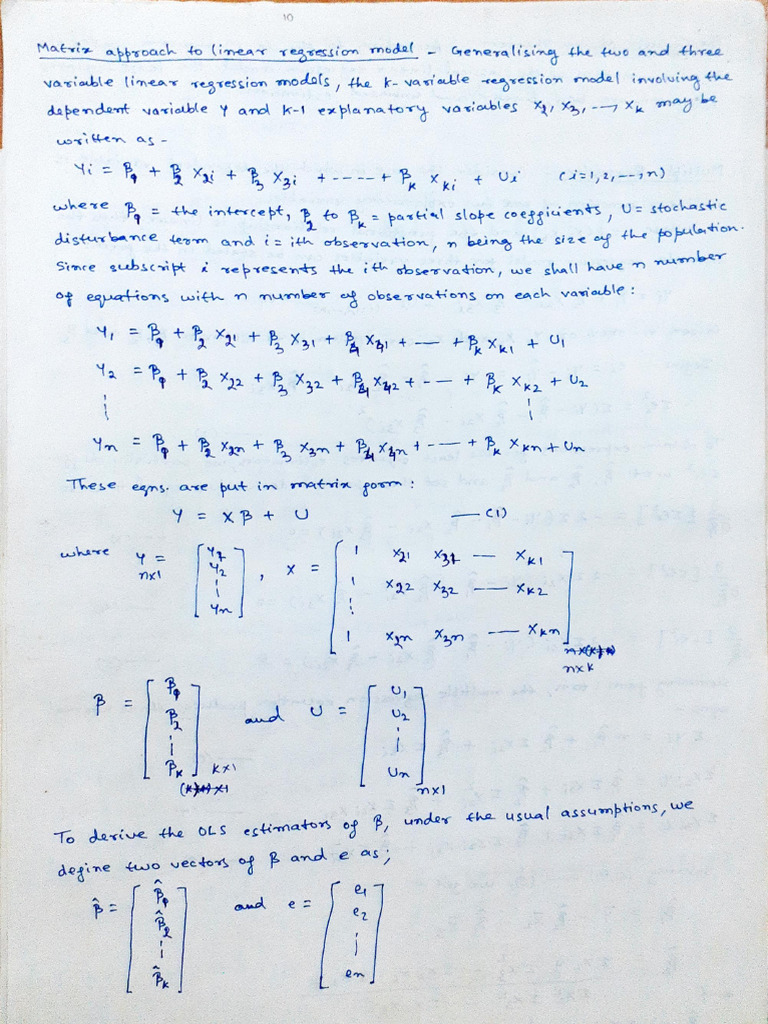 10
Matrix approach to linear regression model - Generalising the two and three
variable linear regression models, the k-variable regression model involving the
dependent variable Y and k-1 explanatory variables X2, X3, ---, Xk may be
written as -
Yi = β1 + β2 X2i + β3 X3i + ---- + βk Xki + Ui (i=1,2,--,n)
where β1 = the intercept, β2 to βk = partial slope coefficients, U = stochastic
disturbance term and i = ith observation, n being the size of the population.
Since subscript i represents the ith observation, we shall have n number
of equations with n number of observations on each variable:
Y1 = β1 + β2 X21 + β3 X31 + β4 X41 + --- + βk Xk1 + U1
Y2 = β1 + β2 X22 + β3 X32 + β4 X42 + --- + βk Xk2 + U2
Yn = β1 + β2 X2n + β3 X3n + β4 X4n + --- + βk Xkn + Un
These eqns. are put in matrix form:
Y = Xβ + U —(1)
where Y = [Y1 Y2 ⋮ Yn] , X = [1 X21 X31 --- Xk1
n×1
1 X22 X32 --- Xk2
⋮
1 X2n X3n --- Xkn]
n×k
β = [β1 β2 ⋮ βk] k×1 and U = [U1 U2 ⋮ Un] n×1
To derive the OLS estimators of β, under the usual assumptions, we
define two vectors of β and e as;
β̂ = [β̂1 β̂2 ⋮ β̂k] and e = [e1 e2 ⋮ en]